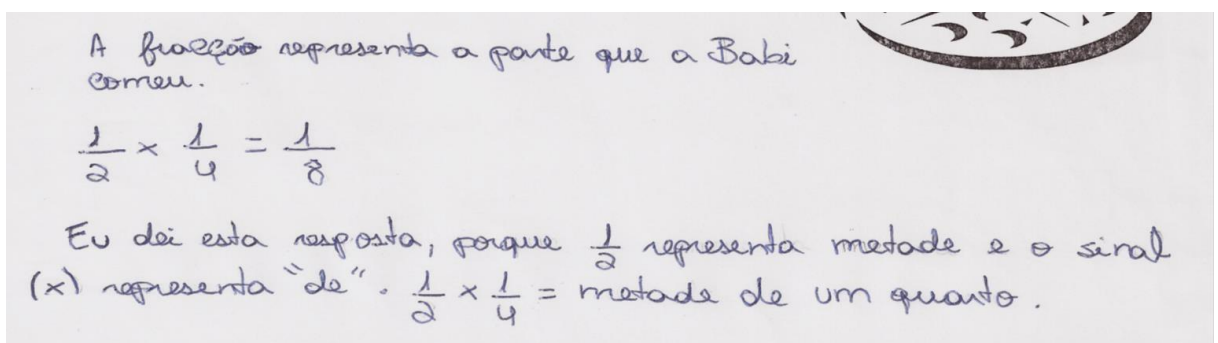 A fracção representa a parte que a Babi
comeu.
1/2 × 1/4 = 1/8
Eu dei esta resposta, porque 1/2 representa metade e o sinal
(x) representa "de". 1/2 × 1/4 = metade de um quarto.